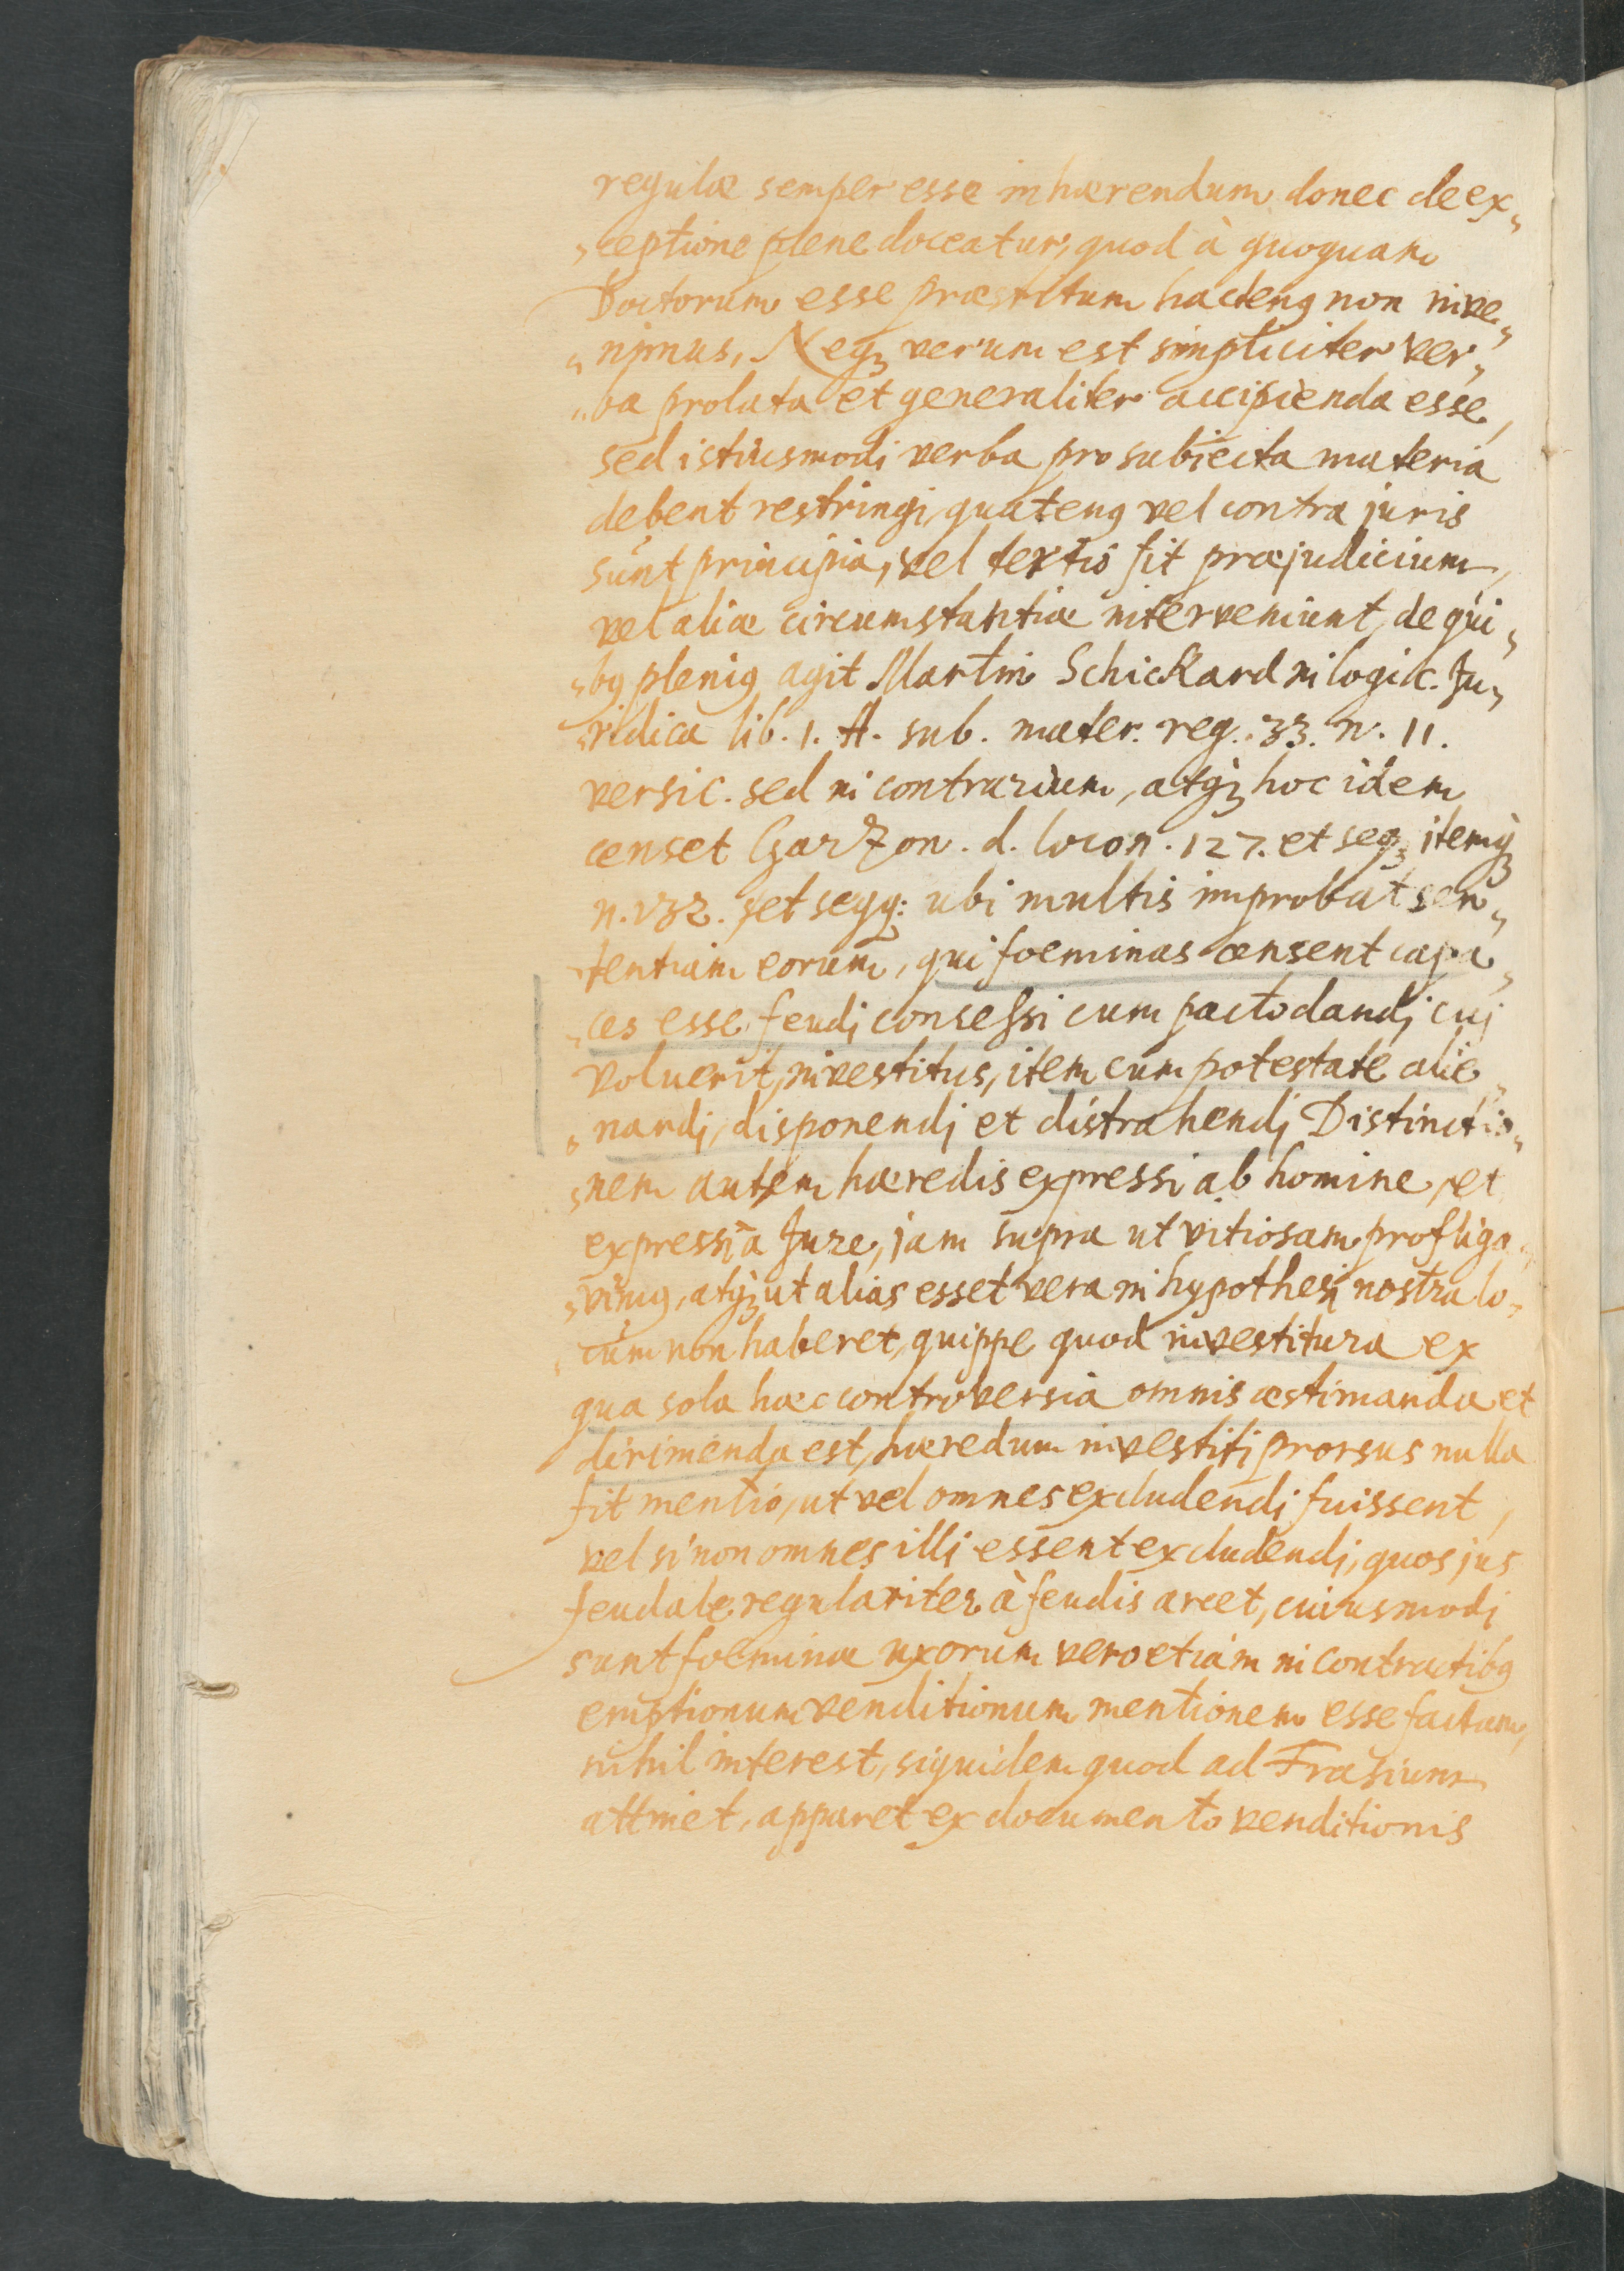 regulæ semper esse inhærendum donec de ex„
„ceptione plene doceatur, quod à quoquam
Doctorum esse præstitum hacteng non inve„
„nimus, Neqꝫ verum est simpliciter ver„
„ba prolata et generaliter accipienda esse,
sed istiusmodi verba pro subiecta materia
debent restringi, quateng vel contra juris
sunt principia, vel tertio fit præjudicium,
vel aliæ circumstantiæ interveniunt, de qui„
„bꝯ pleniꝯ agit Martin Schickard in logic. Ju„
„ridica lib. 1. tt. sub. mater. reg. 33. n. 11.
versic. sed in contrarium, atqꝫ hoc idem
censet Garzon. d. loco n. 127. et seqꝫ itemqꝫ
n. 132. et seqq: ubi multis improbat sen„
„tentiam eorum, qui foeminas censent capa„
„ces esse feudi concessi cum pacto dandi cui
voluerit, investitus, item cum potestate alie„
„nandi, disponendi et distrahendi Distinctio„
„nem autem hæredis expressi ab homine, et
expressi à Jure, jam supra ut vitiosam profliga„
„vimꝯ, atqꝫ ut alias esset vera in hypothesi nostra lo„
„cum non haberet, quippe quod investitura ex
qua sola hæc controversia omnis æstimanda et
dirimenda est, hæredum investiti prorsus nulla
fit mentio, ut vel omnes excludendi fuissent,
vel si non omnes illi essent excludendi, quos jus
feudale regulariter à feudis arcet, cuiusmodi
sunt foeminæ uxorum vero etiam in contractibꝯ
emptionum venditionum mentionem esse factam,
nihil interest, siquidem quod ad Frasium
attinet, apparet ex documento venditionis